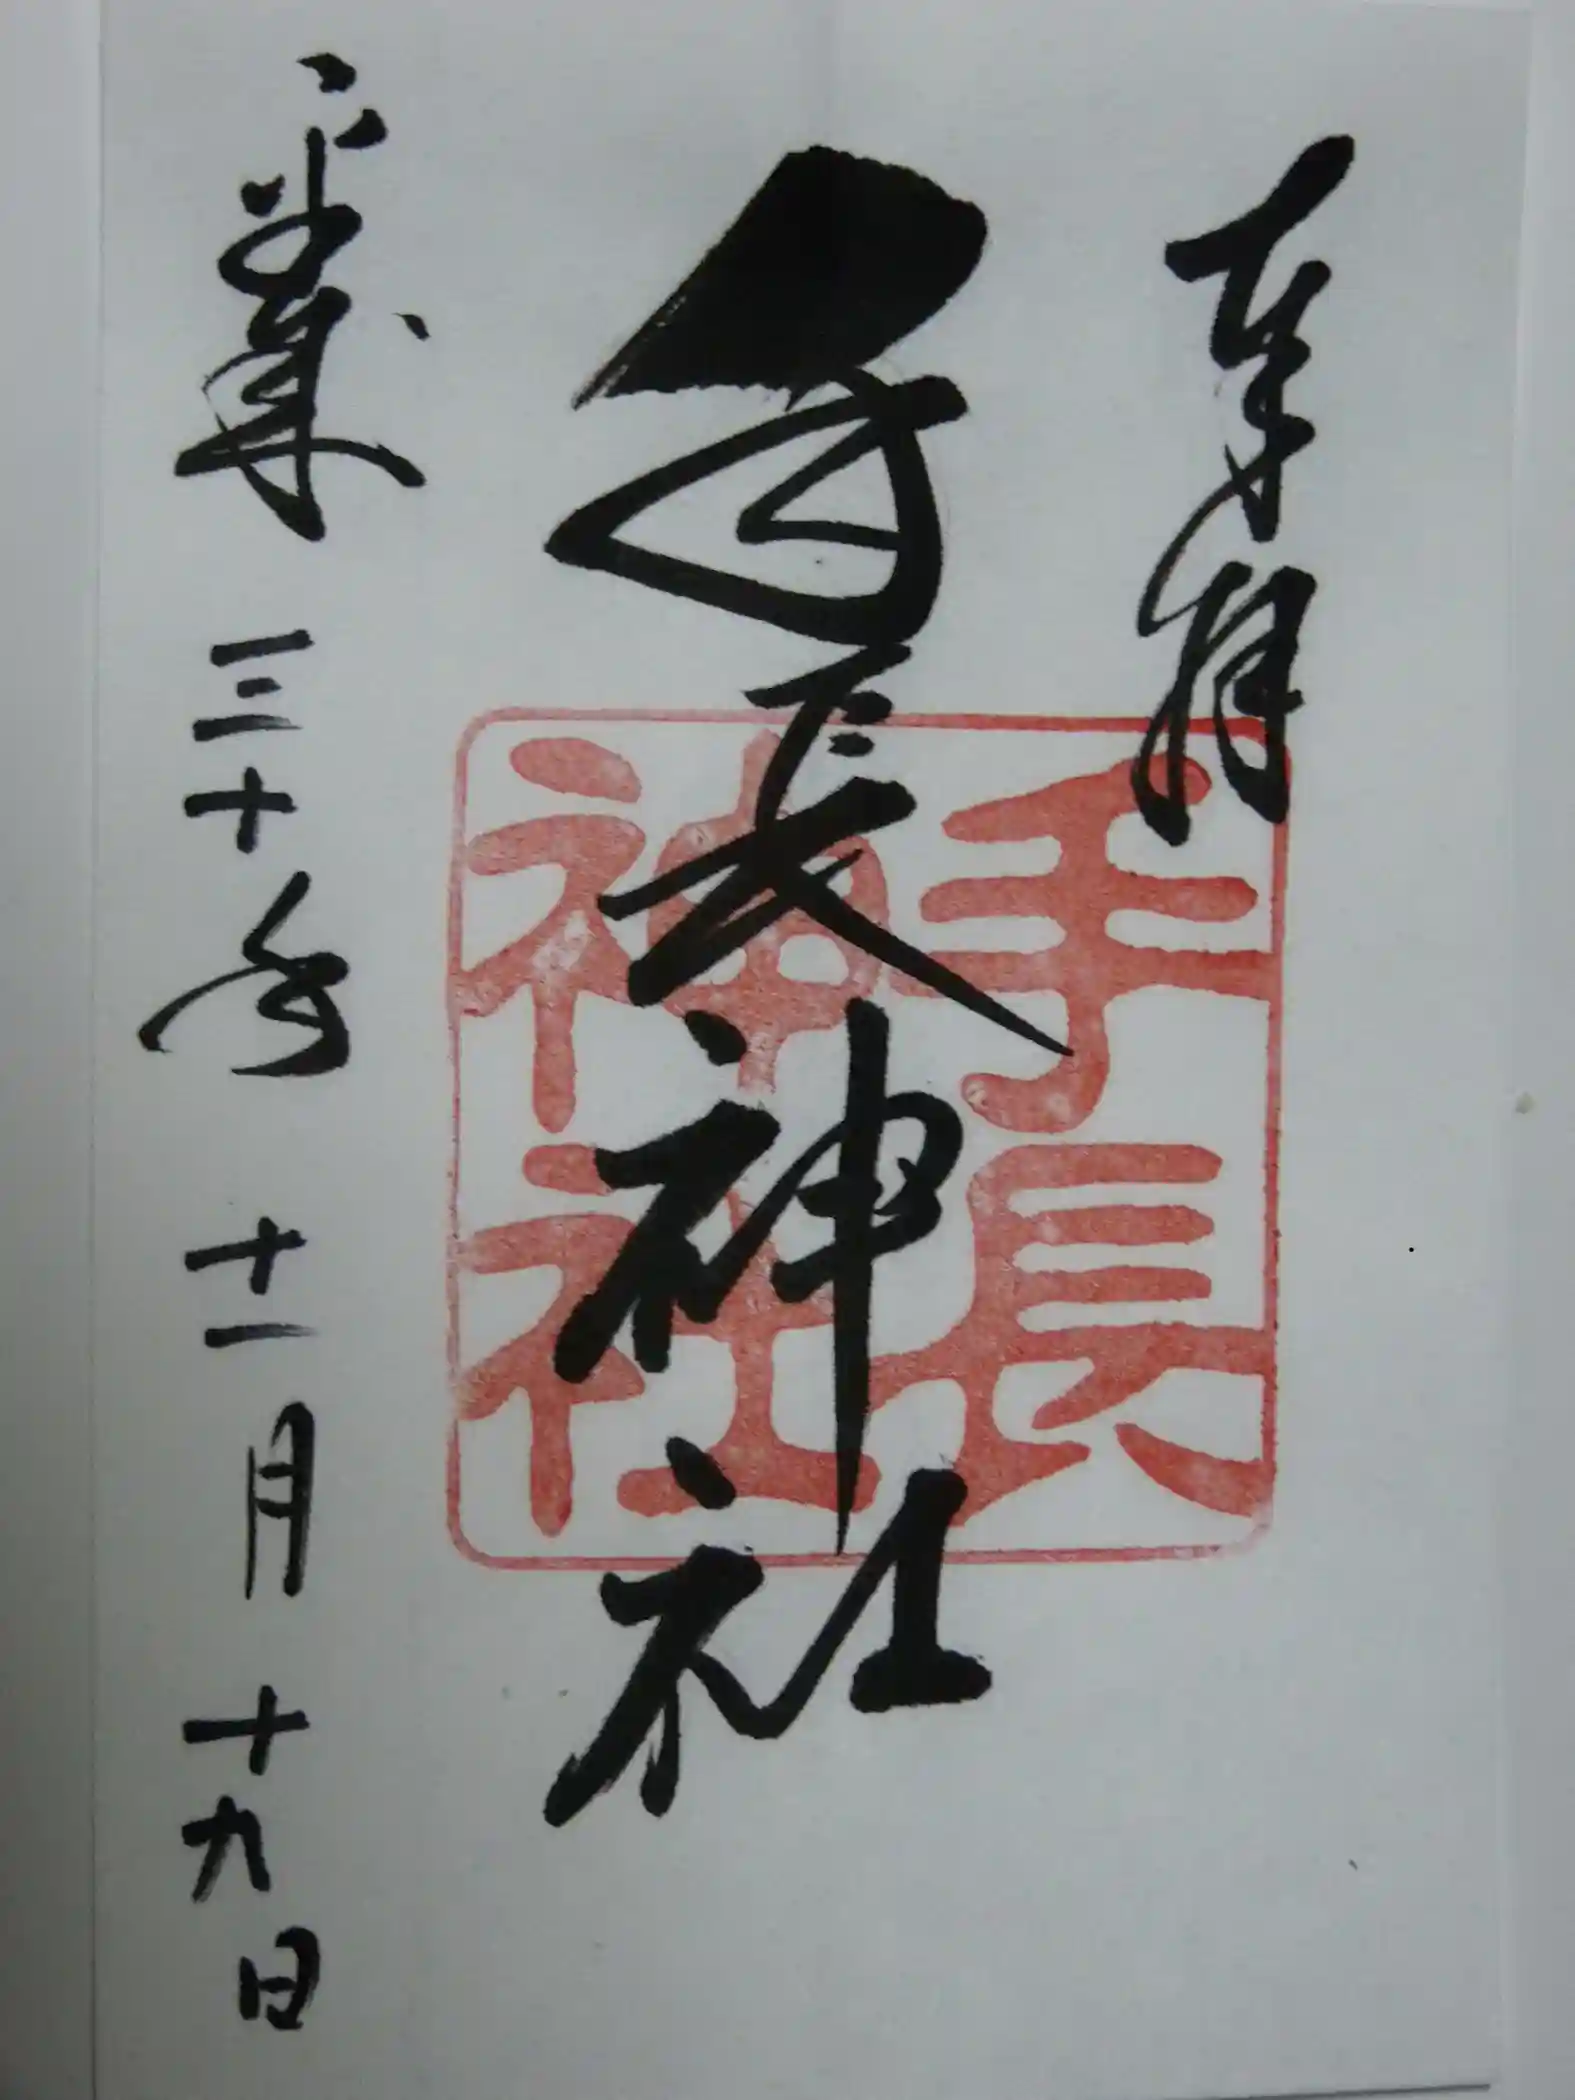 奉拝
手長神社
手長神社
平成三十年十一月十九日